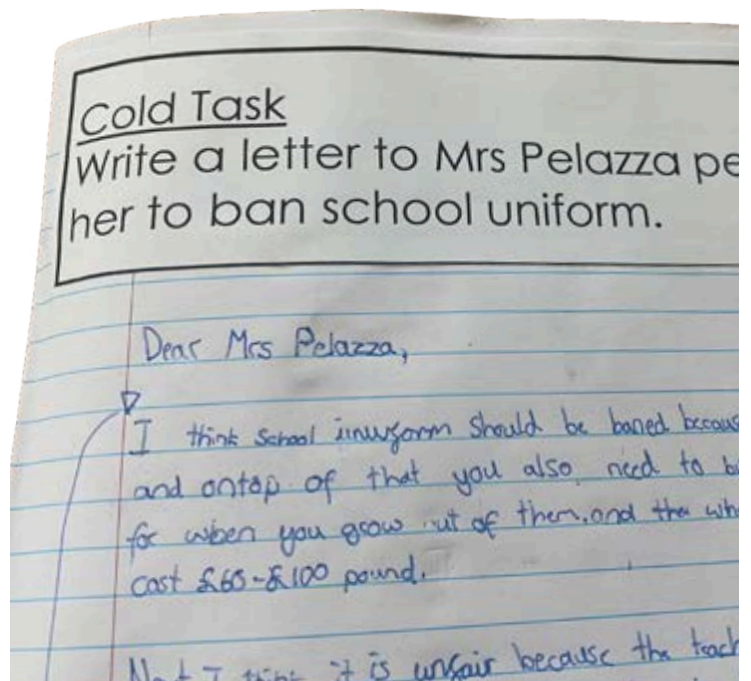 Cold Task
Write a letter to Mrs Pelazza pe
her to ban school uniform.
Dear Mrs Pelazza,
I think School should be baned becaus
and ontop of that you also need to b
for when you grow ut of them. and the wh
cast £60-£100 pound.
I think it is unfair because the teach